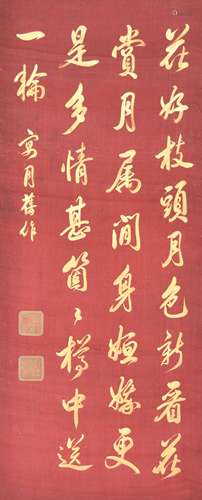 花好枝頭月色新看花
賞月属閒身姮娥更
是多情甚箇〻樽中送
一輪
宴月舊作